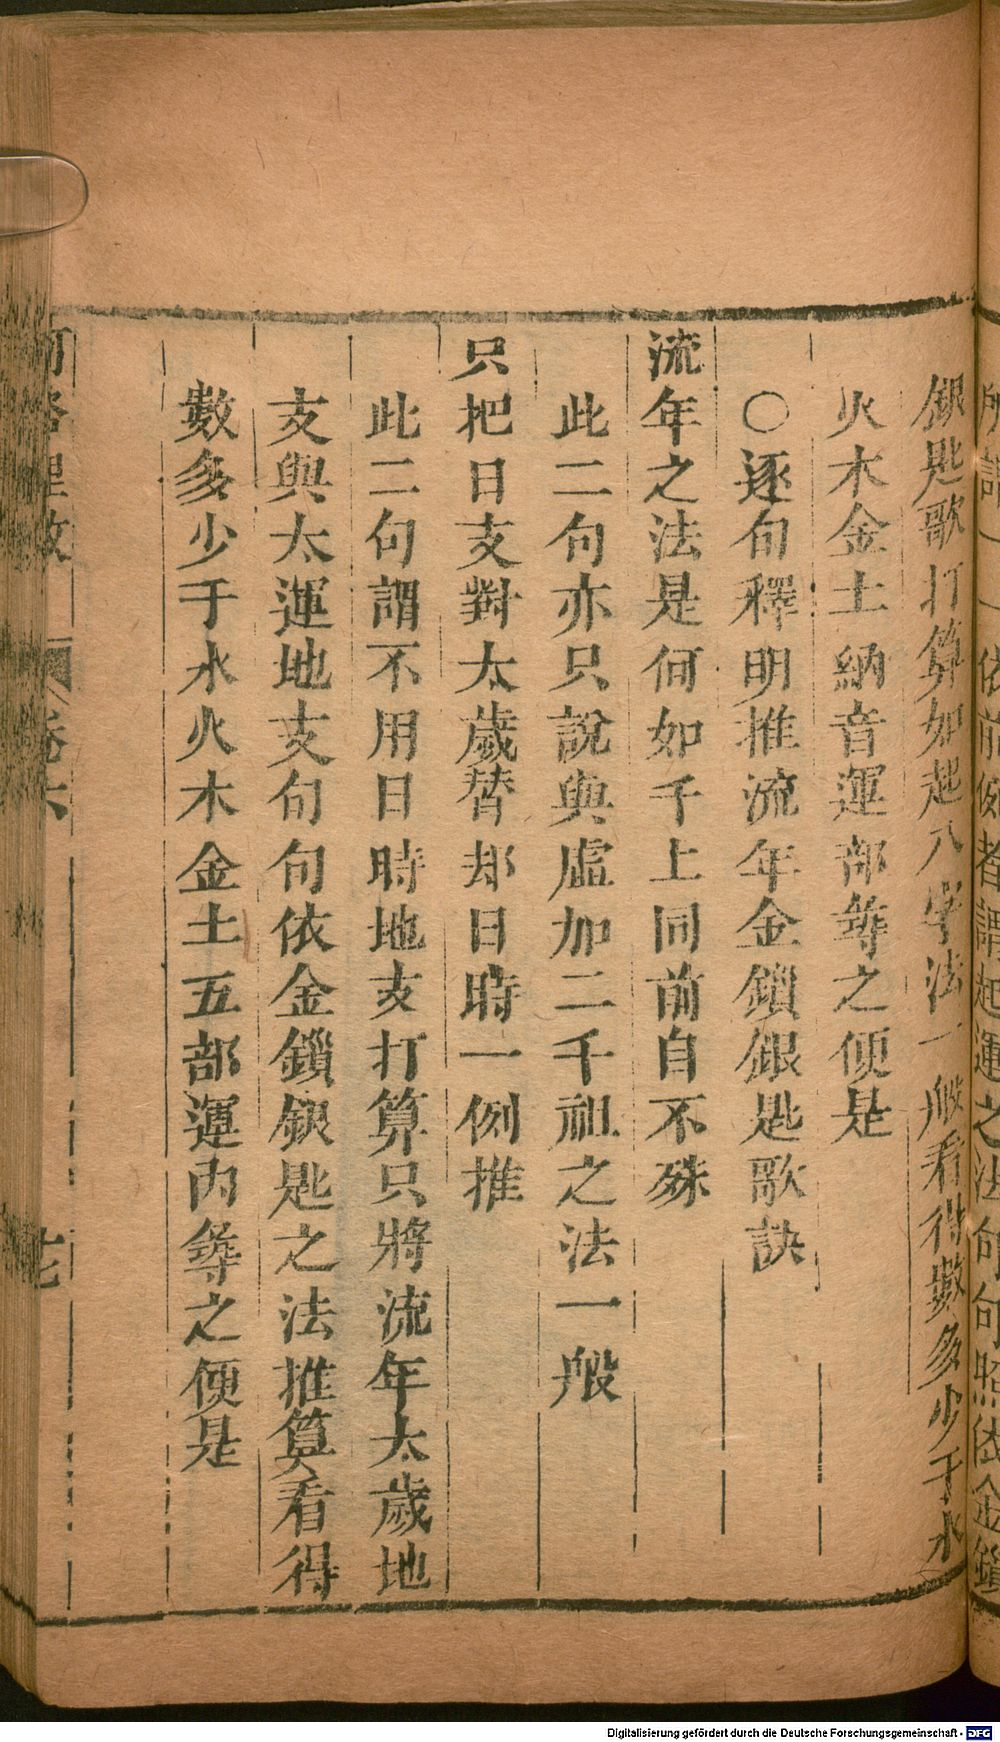 依前例者謂起運之法句句照依金鎖
銀匙歌打算如起八字法一般看得數多少于水
火木金土納音運部等之便是
○逐句釋明推流年金鎖銀匙歌訣
流年之法是何如千上同前自不殊
此二句亦只說與虛加二千祖之法一般
只把日支對太歲替却日時一例推
此二句謂不用日時地支打算只將流年太歲地
支與太運地支句句依金鎖銀匙之法推算看得
數多少于水火木金土五部運內等之便是
理數
卷六
Digitalisierung gefördert durch die Deutsche Forschungsgemeinschaft - DFG